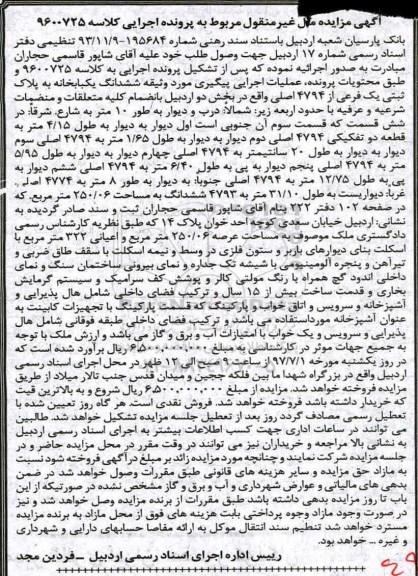 آگهی مزایده مال غیرمنقول مربوط به پرونده اجرایی کلاسه ۹۶۰۰۷۲۵
بانک پارسیان شعبه اردبیل باستناد سند رهنی شماره ۱۹۵۶۸۴-۹۳/۱۱/۹ تنظیمی دفتر
اسناد رسمی شماره ۱۷ اردبیل جهت وصول طلب خود علیه آقای شاپور قاسمی حجاران
مبادرت به صدور اجرائیه نموده که پس از تشکیل پرونده اجرایی به کلاسه ۹۶۰۰۷۲۵ و
طبق محتویات پرونده، عملیات اجرایی پیگیری مورد وثیقه ششدانگ یکبابخانه به پلاک
ثبتی یک فرعی از ۴۷۹۴ اصلی واقع در بخش دو اردبیل بانضمام کلیه متعلقات و منضمات
شرعیه و عرفیه با حدود اربعه زیر: شمالا: درب و دیوار به طور ۱۰ متر به شارع. شرقا: در
شش قسمت که قسمت سوم آن جنوبی است اول دیوار به دیوار به طول ۴/۱۵ متر به
قطعه دو تفکیکی ۴۷۹۴ اصلی دوم دیوار به دیوار به طول ۱/۶۵ متر به ۴۷۹۴ اصلی سوم
دیوار به دیوار به طول ۲۰ سانتیمتر به ۴۷۹۴ اصلی چهارم دیوار به دیوار به طول ۵/۹۵
متر به ۴۷۹۴ اصلی پنجم دیوار به پی به طول ۶/۴۰ متر به ۴۷۹۴ اصلی ششم دیوار به
پی به طول ۱۲/۷۵ متر به ۴۷۹۴ اصلی جنوبا: به دیوار به طور ۸ متر به ۴۷۷۴ اصلی
غربا: دیواریست به طول ۳۱/۱۰ متر به ۴۷۹۳ ششدانگ به مساحت ۲۵۰/۰۶ متر مربع. که
در صفحه ۱۰۲ دفتر ۲۲۲ بنام آقای شاپور قاسمی حجاران ثبت و سند صادر گردیده به
نشانی: اردبیل خیابان سعدی کوچه احد خوان پلاک ۱۴ که طبق نظریه کارشناس رسمی
دادگستری ملک موصوف به مساحت عرصه ۲۵۰/۰۶ متر مربع و اعیانی ۳۲۲ متر مربع. با
اسکلت بنای دیوارهای باربر و ستون فلزی در وسط و نیمه اسکلت با سقف طاق ضربی و
تیر آهن و پنجره آلومینیومی با شیشه تک جداره و نمای بیرونی ساختمان سنگ و نمای
داخلی اندود گچ همراه با رنگ مولتی کالر و پوشش کف سرامیک و سیستم گرمایش
بخاری و قدمت ساخت بیش از ۱۵ سال و ترکیب فضای داخلی شامل هال پذیرایی و
آشپزخانه و سرویس و اتاق خواب و پارکینگ که قسمت پارکینگ با تجهیزات کابینت به
عنوان آشپزخانه مورداستفاده می باشد و ترکیب فضای داخلی طبقه فوقانی شامل هال
پذیرایی و سرویس و یک خواب با امتیازات آب و برق و گاز می باشد و ارزش ملک با توجه
به جمیع جهات موثر در کارشناسی به مبلغ ۶۵۰۰۰۰۰۰۰۰ ریال برآورد شده است که
در روز یکشنبه مورخه ۹۷/۷/۱ از ساعت ۹ صبح الی ۱۲ ظهر در محل اجرای اسناد رسمی
اردبیل واقع در بزرگراه شهدا ما بین فلکه ججین و میدان قدس جنب تالار میلاد از طریق
مزایده فروخته خواهد شد. مزایده از مبلغ ۶۵۰۰۰۰۰۰۰۰ ریال شروع و به بالاترین قیمت
که خریدار داشته باشد فروخته خواهد شد. فروش نقدی است. هر گاه روز تعیین شده با
تعطیل رسمی مصادف گردد روز بعد از تعطیل جلسه مزایده تشکیل خواهد شد. طالبین
می توانند در ساعات اداری جهت کسب اطلاعات بیشتر به اجرای اسناد رسمی اردبیل
به نشانی بالا مراجعه و خریداران نیز می توانند در وقت مقرر در محل مزایده حاضر و در
جلسه مزایده شرکت نمایند و چنانچه مورد مزایده زائد بر مبلغ در آگهی فروخته شود نسبت
به مازاد حق مزایده و سایر هزینه های قانونی طبق مقررات وصول خواهد شد در ضمن
بدهی های مالیاتی و عوارض شهرداری و آب و برق و گاز مشخص نشده در صورتیکه از این
باب تا روز مزایده بدهی داشته باشد طبق مقررات از برنده مزایده وصل خواهد شد و نیز
در صورت وجود مازاد وجوه پرداختی بابت هزینه های فوق از محل مازاد به برنده مزایده
مسترد خواهد شد تنظیم سند انتقال موکل به ارائه مفاصا حسابهای دارایی و شهرداری
و غیره ... خواهد بود.
رییس اداره اجرای اسناد رسمی اردبیل - فردین مجد